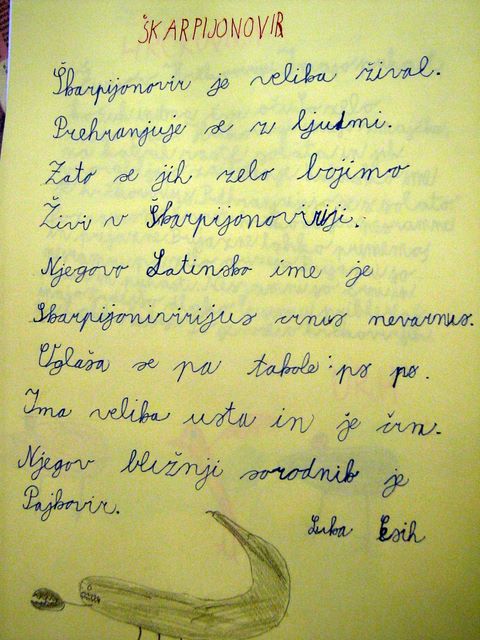 ŠKARPIJONOVIR
Škarpijonovir je velika žival.
Prehranjuje se z ljudmi.
Zato se jih zelo bojimo
Živi v Škarpijonoviriji.
Njegovo Latinsko ime je
Skarpijonivirijus črnus nevarnus.
Oglaša se pa takole: ps ps.
Ima velika usta in je črn.
Njegov bližnji sorodnik je
Pajkovir.
Luka Lesih